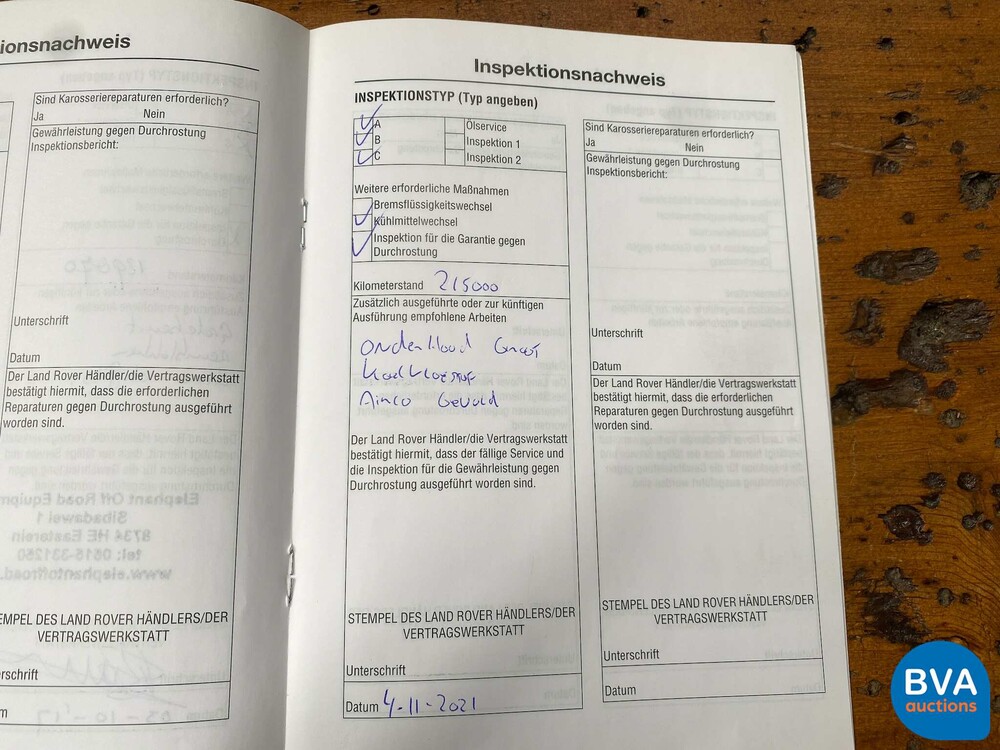 ionsnachweis
Sind Karosseriereparaturen erforderlich?
Ja Nein
Gewährleistung gegen Durchrostung
Inspektionsbericht:
Unterschrift
Datum
Der Land Rover Händler/die Vertragswerkstatt
bestätigt hiermit, dass die erforderlichen
Reparaturen gegen Durchrostung ausgeführt
worden sind.
EMPEL DES LAND ROVER HÄNDLERS/DER
VERTRAGSWERKSTATT
rschrift
m
Inspektionsnachweis
INSPEKTIONSTYP (Typ angeben)
A Ölservice
B Inspektion 1
C Inspektion 2
Weitere erforderliche Maßnahmen
Bremsflüssigkeitswechsel
Kühlmittelwechsel
Inspektion für die Garantie gegen
Durchrostung
Kilometerstand 215000
Zusätzlich ausgeführte oder zur künftigen
Ausführung empfohlene Arbeiten
Onderhoud Groot
Koelvloeistof
Airco Gevuld
Der Land Rover Händler/die Vertragswerkstatt
bestätigt hiermit, dass der fällige Service und
die Inspektion für die Gewährleistung gegen
Durchrostung ausgeführt worden sind.
STEMPEL DES LAND ROVER HÄNDLERS/DER
VERTRAGSWERKSTATT
Unterschrift
Datum 4-11-2021
Sind Karosseriereparaturen erforderlich?
Ja Nein
Gewährleistung gegen Durchrostung
Inspektionsbericht:
Unterschrift
Datum
Der Land Rover Händler/die Vertragswerkstatt
bestätigt hiermit, dass die erforderlichen
Reparaturen gegen Durchrostung ausgeführt
worden sind.
STEMPEL DES LAND ROVER HÄNDLERS/DER
VERTRAGSWERKSTATT
Unterschrift
Datum
BVA
auctions